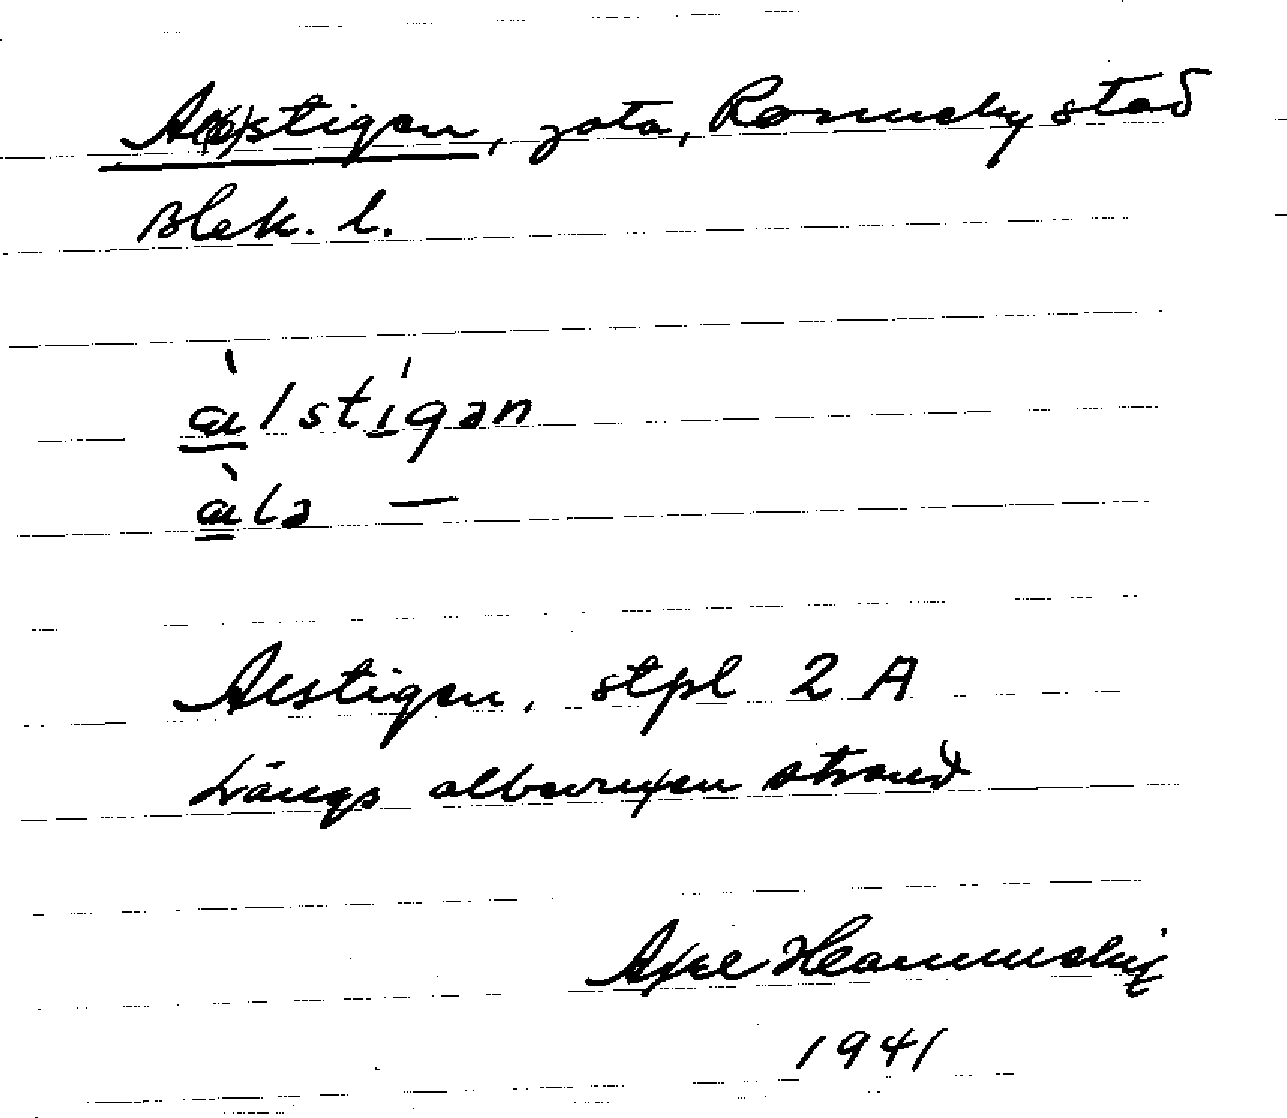 Al(e)stigen, gata, Ronneby stad
Blek. l.
àlstígən
àlə —
Alstigen, stpl 2 A
Längs albevuxen strand
Axel
1941